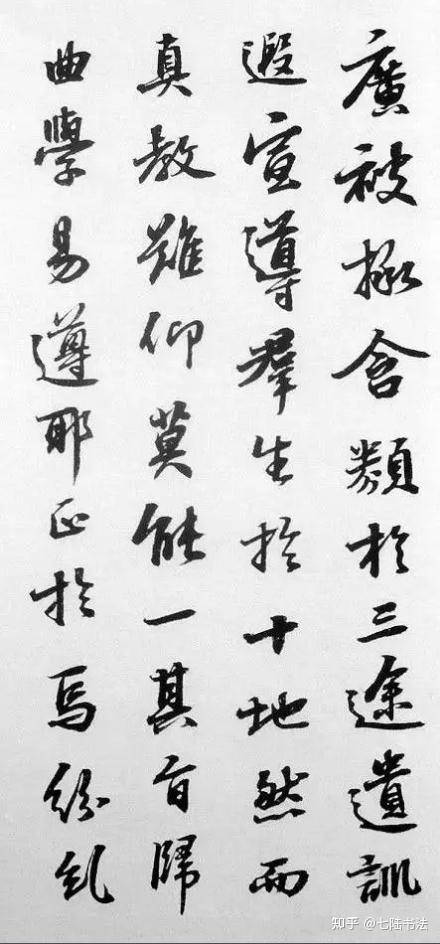 廣被拯含類於三途遺訓
遐宣導群生於十地然而
真教難仰莫能一其旨歸
曲學易遵耶正於焉紛糺
知乎 @七陆书法